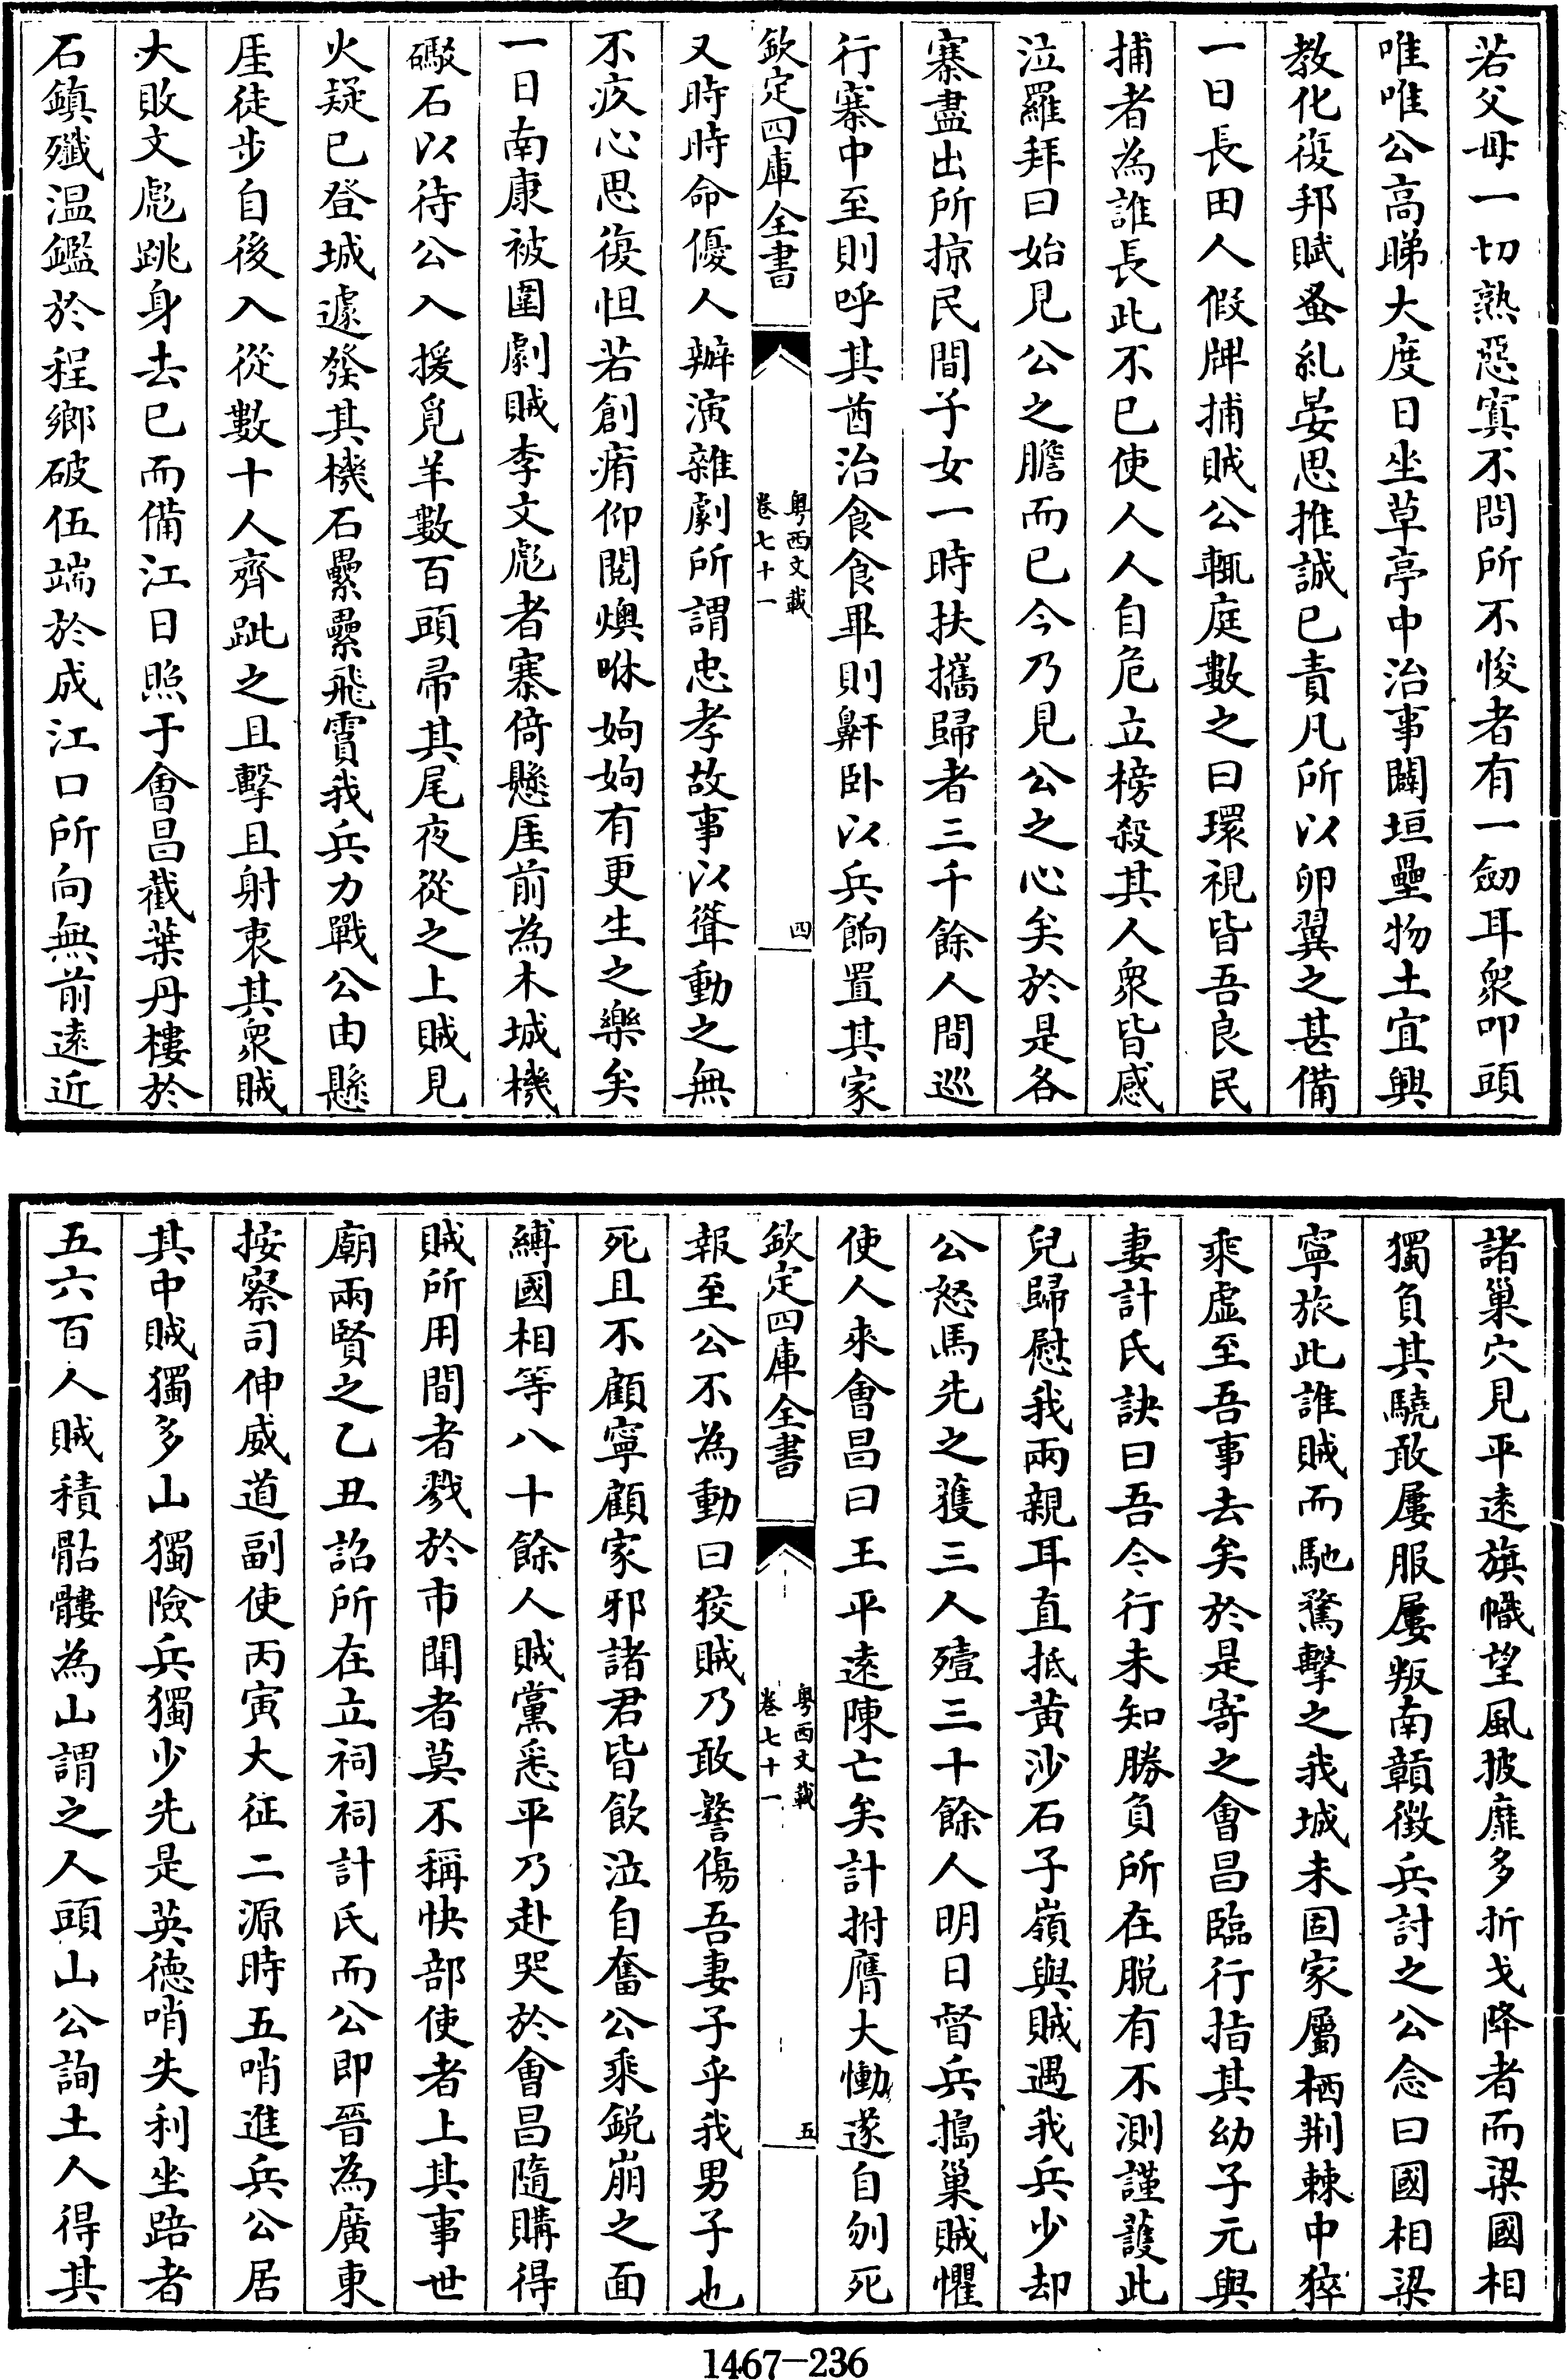 若父母一切熟惡寘不問所不悛者有一劒耳衆叩頭
唯唯公高睇大度日坐草亭中治事闢垣壘物土宜興
教化復邦賦蚤糺晏思推誠已責凡所以卵翼之甚備
一日長田人假牌捕賊公輙庭數之曰環視皆吾良民
捕者為誰長此不已使人人自危立榜殺其人衆皆感
泣羅拜曰始見公之膽而已今乃見公之心矣於是各
寨盡出所掠民間子女一時扶攜歸者三千餘人間巡
行寨中至則呼其酋治食食畢則鼾卧以兵餉置其家
欽定四庫全書
粤西文載
卷七十一
四
又時時命優人辦演雜劇所謂忠孝故事以聳動之無
不疚心思復怛若創痏仰閲燠咻姁姁有更生之樂矣
一日南康被圍劇賊李文彪者寨倚懸厓前為木城機
礮石以待公入援覓羊數百頭帚其尾夜從之上賊見
火疑已登城遽發其機石纍纍飛霣我兵力戰公由懸
厓徒步自後入從數十人齊跐之且擊且射衷其衆賊
大敗文彪跳身去已而備江日照于會昌截葉丹樓於
石鎮殲温鑑於程鄉破伍端於成江口所向無前逺近
諸巢穴見平逺旗幟望風披靡多折戈降者而梁國相
獨負其驍敢屢服屢叛南贑徴兵討之公念曰國相梁
寧旅此誰賊而馳驁擊之我城未固家屬栖荆棘中猝
乘虚至吾事去矣於是寄之會昌臨行指其幼子元與
妻計氏訣曰吾今行未知勝負所在脱有不測謹護此
兒歸慰我兩親耳直抵黄沙石子嶺與賊遇我兵少却
公怒馬先之獲三人殪三十餘人明日督兵搗巢賊懼
使人來會昌曰王平逺陳亡矣計拊膺大慟遂自刎死
欽定四庫全書
粤西文載
卷七十一
五
報至公不為動曰狡賊乃敢謷傷吾妻子乎我男子也
死且不顧寧顧家邪諸君皆飲泣自奮公乘鋭崩之面
縛國相等八十餘人賊黨悉平乃赴哭於會昌隨購得
賊所用間者戮於市聞者莫不稱快部使者上其事世
廟兩賢之乙丑詔所在立祠祠計氏而公即晉為廣東
按察司伸威道副使丙寅大征二源時五哨進兵公居
其中賊獨多山獨險兵獨少先是英徳哨失利坐踣者
五六百人賊積骷髏為山謂之人頭山公詢土人得其
1467—236